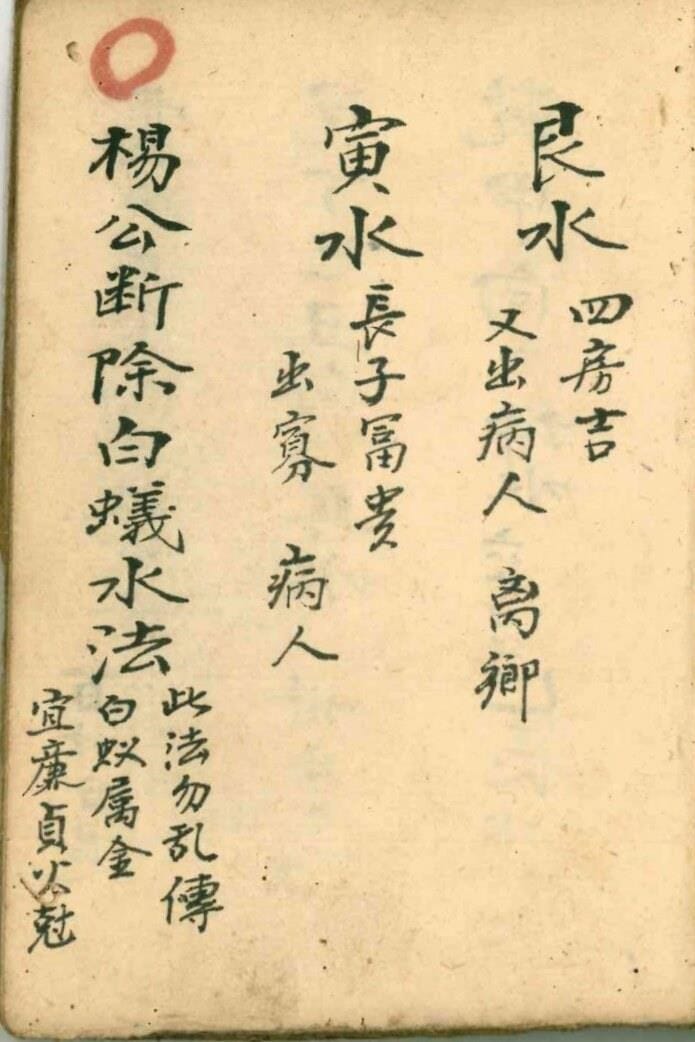 艮水
四房吉
又出病人 离鄉
寅水
長子冨貴
出寡 病人
楊公断除白蟻水法
此法勿乱傳
白蚁属金
宜廉貞火尅